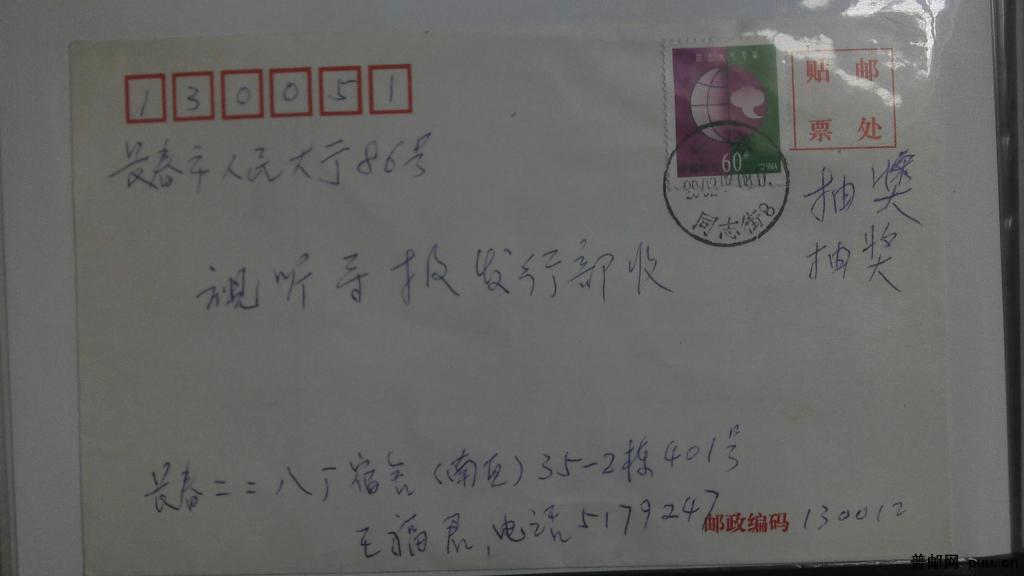 130051
贴 邮
票 处
60
同志街8
长春市人民大厅86号
抽奖
抽奖
视听导报发行部收
长春二二八厂宿舍(南区)35-2栋401号
王福君,电话5179247
邮政编码 130012
普邮网 puu.cn